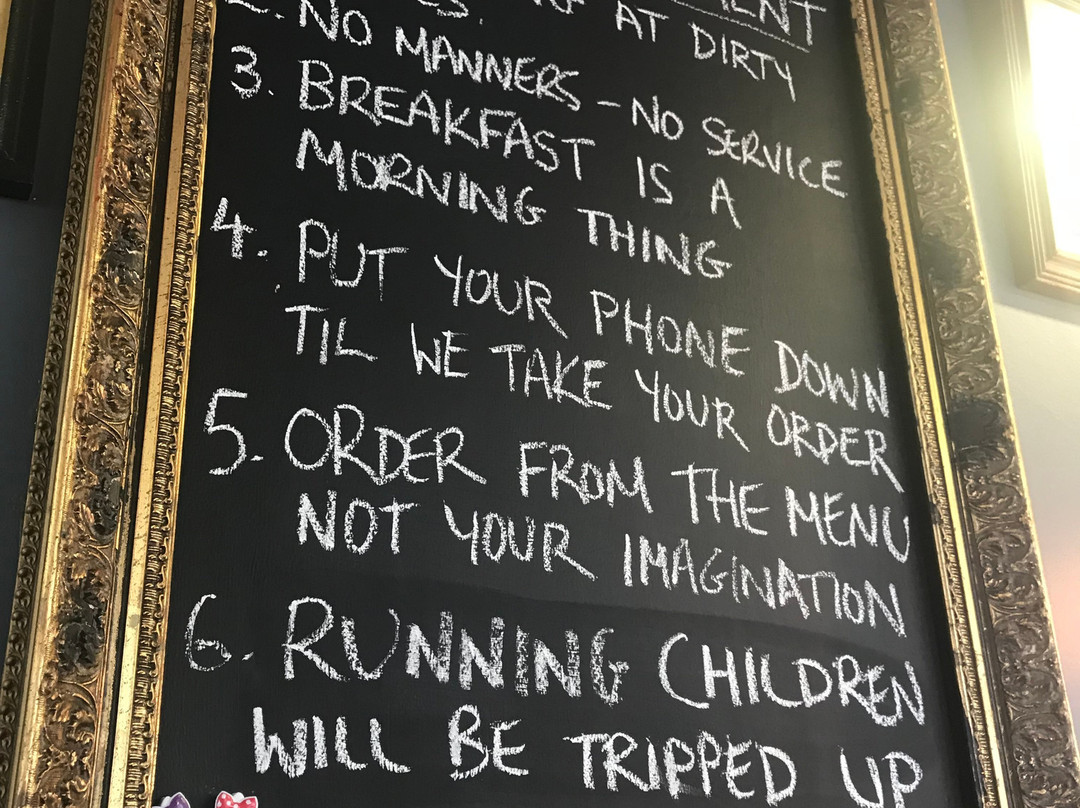 AT DIRTY
2. NO MANNERS - NO SERVICE
3. BREAKFAST IS A
MORNING THING
4. PUT YOUR PHONE DOWN
TIL WE TAKE YOUR ORDER
5. ORDER FROM THE MENU
NOT YOUR IMAGINATION
6. RUNNING CHILDREN
WILL BE TRIPPED UP